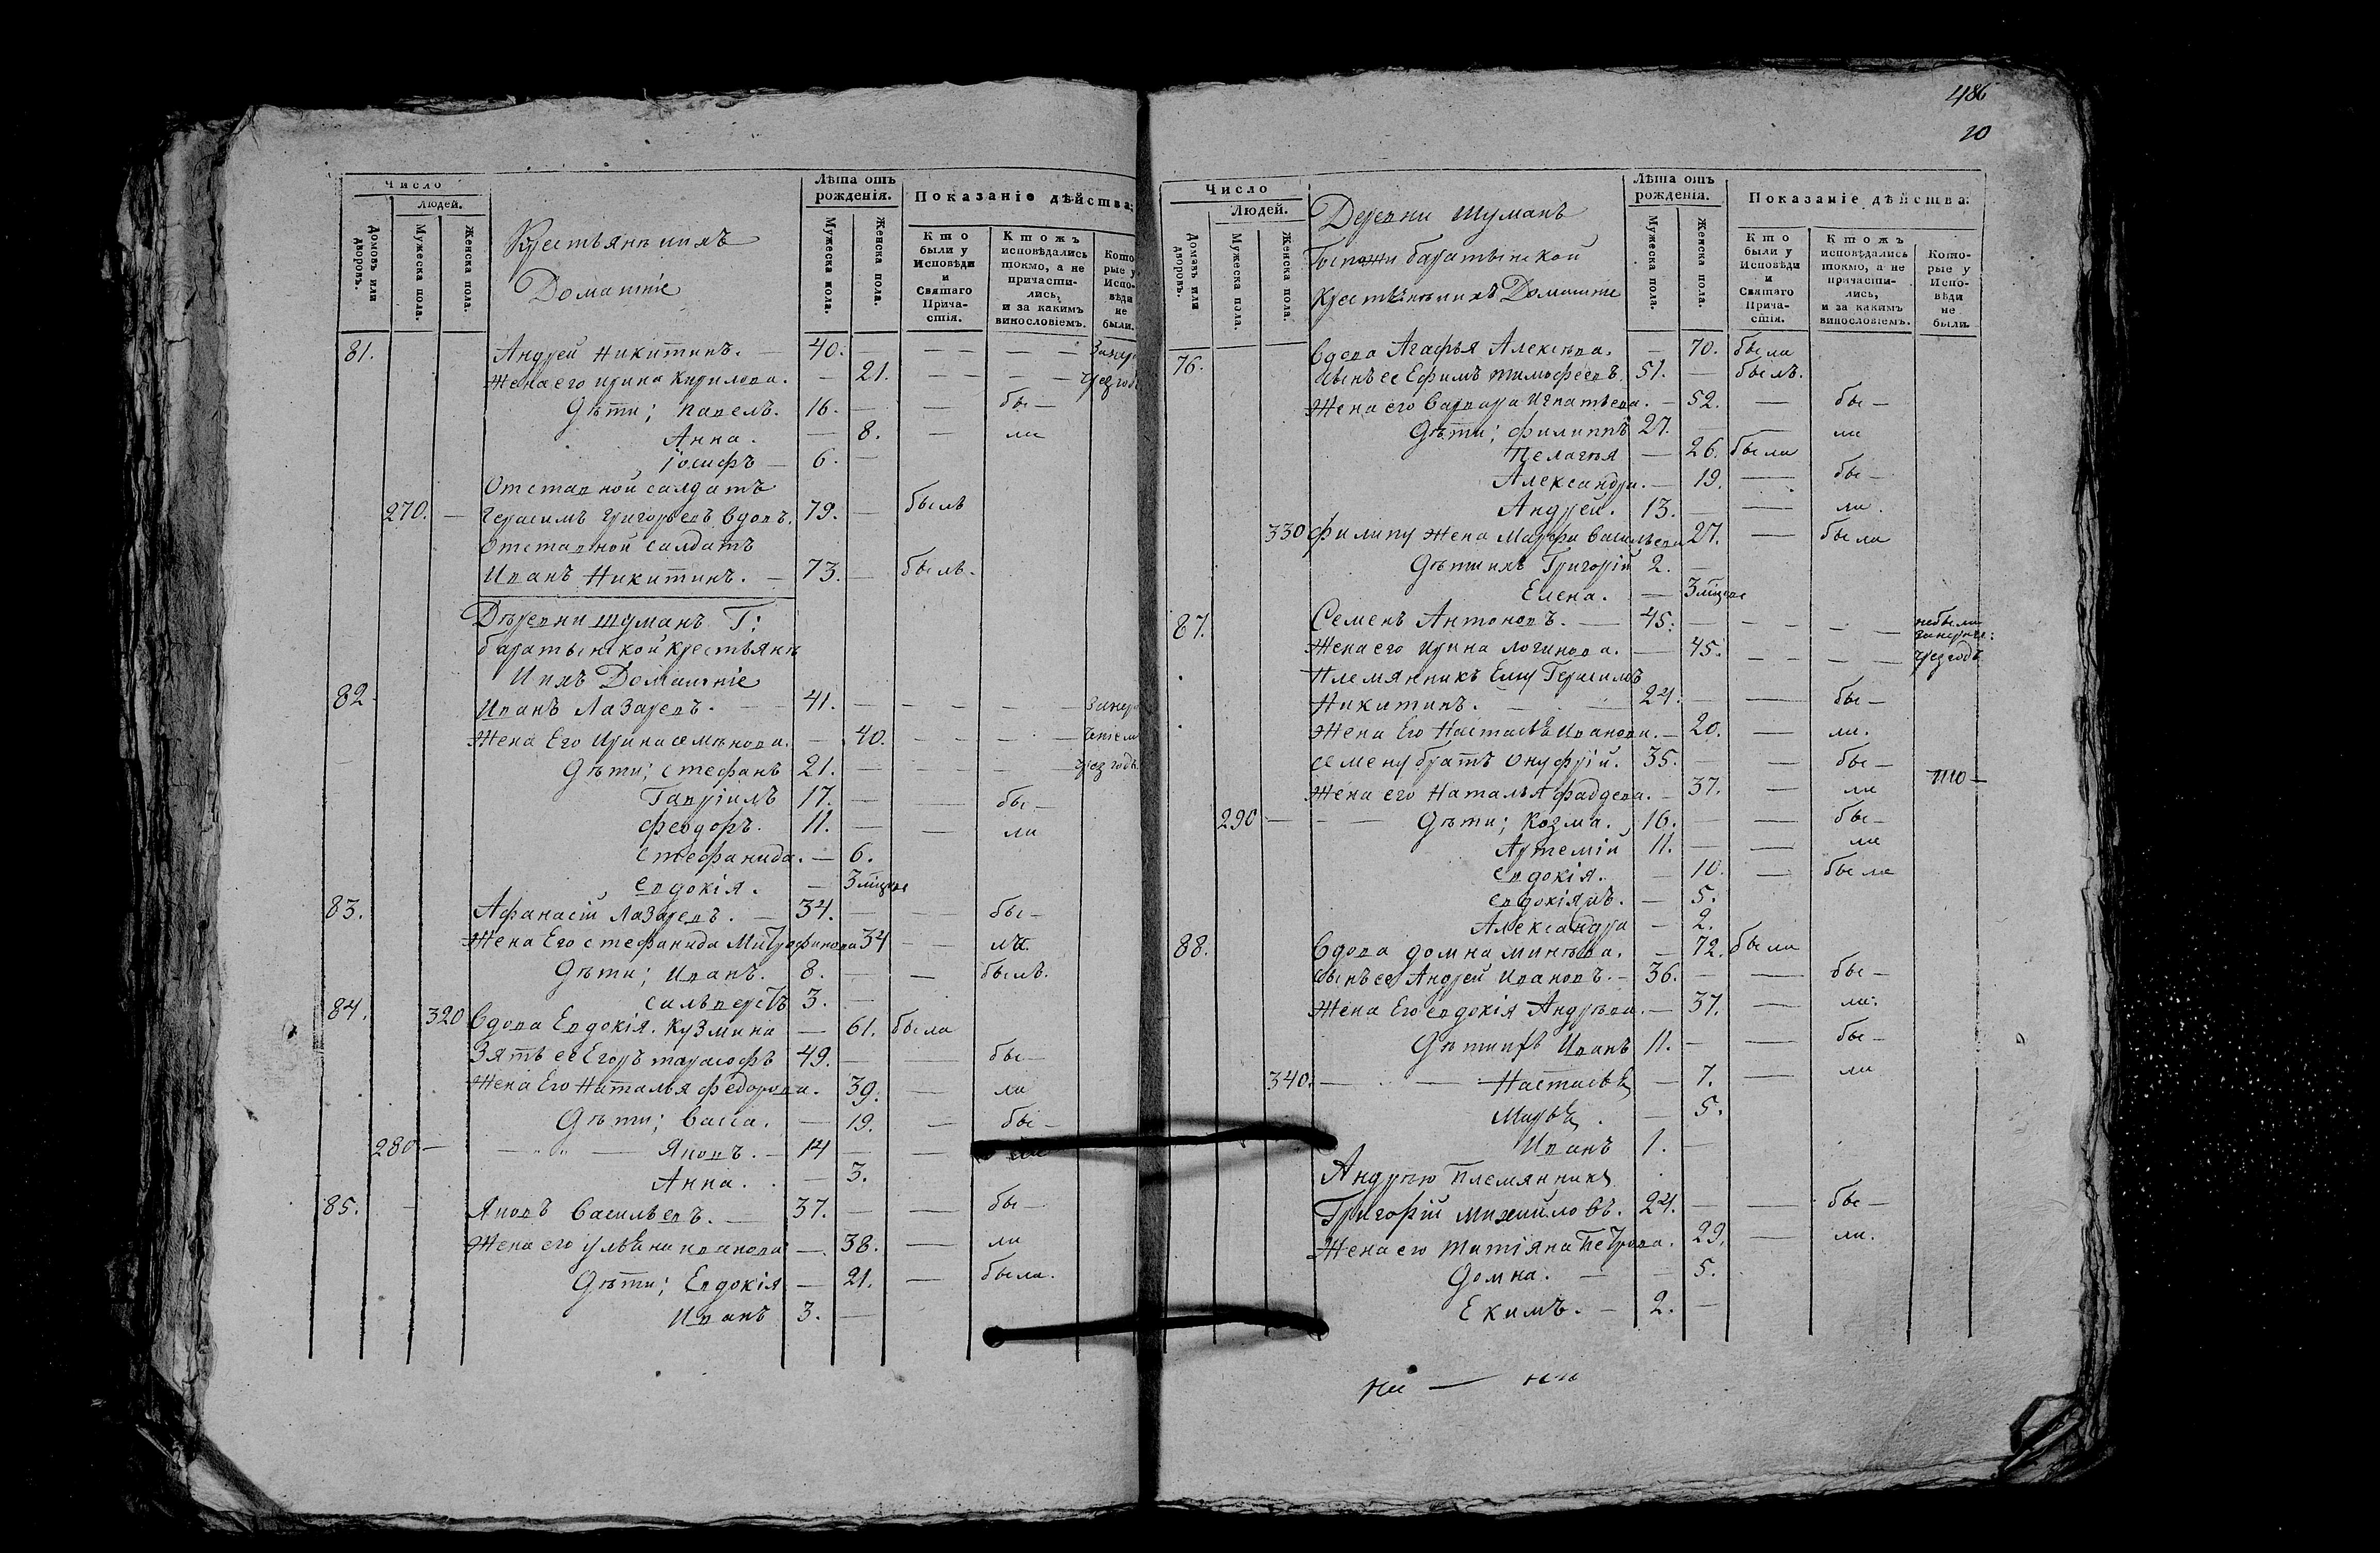 Число
людей.
Домовъ или дворовъ.
Мужеска пола.
Женска пола.
Крестьянъ ихъ
Домашніе
Лѣта отъ рожденія.
Мужеска пола.
Женска пола.
Показаніе дѣйства;
Кто были у Исповѣди и Святаго Прича-стія.
Ктожъ исповѣдались токмо, а не причасти-лись, и за какимъ винословіемъ.
Кото-рые у Испо-вѣди не были.
81. Андрей Никитинъ. — 40. —
Жена его Ирина Кирилова. — 21.
Дѣти; Павелъ. 16. — — бы —
Анна. — 8. — ли
Іосифъ — 6. —
Отставной салдатъ
270. — Герасимъ Григорьевъ вдовъ. 79. — былъ
Отставной салдатъ
Иванъ Никитинъ. — 73. — былъ.
Дѣревни Шуманъ Г:
баратынской крестьянъ
И ихъ Домашніе
82. Иванъ Лазаревъ. — 41. —
Жена Его Ирина семѣнова. — 40.
Дѣти; стефанъ 21. — чрез годъ.
Гавріилъ 17. — — бы —
Феодоръ. 11. — — ли
стефанида. — 6.
Евдокія. — 3 мѣцовъ
83. Афанасій Лазаревъ. — 34. — — бы —
Жена Его стефанида Митрофанова 34 — ли.
Дѣти; Иванъ. 8. — — былъ.
сильверстъ 3. —
84. 320 Вдова Евдокія. Кузмина — 61. была
Зять ее Егоръ тарасофъ 49. — — бы —
Жена Его Наталья федорова. 39. — ли
Дѣти; Васса. — 19. — бы —
280 — Яковъ. — 14 — — ли
Анна. — 3.
85. — Яковъ Васильевъ. — 37. — — бы —
Жена его ульѣна иванова — 38. — ли
Дѣти; Евдокія — 21. — была.
Иванъ 3. —
486
20
Число
Людей.
Домовъ или дворовъ.
Мужеска пола.
Женска пола.
Деревни Шуманъ
Госпожи баратынской
крестьянъ ихъ Домашніе
Лѣта отъ рожденія.
Мужеска пола.
Женска пола.
Показаніе дѣйства;
Кто были у Исповѣди и Святаго Прича-стія.
Ктожъ исповѣдались токмо, а не причасти-лись, и за какимъ винословіемъ.
Кото-рые у Испо-вѣди не были.
76. Вдова Агафья Алексѣва. — 70. была
сынъ ее Ефимъ тимофеевъ. 51. — былъ.
Жена его Варвара Игнатьева. — 52. — бы —
Дѣти; филиппъ 27. — — ли
Пелагѣя — 26. была
Александра. — 19. — бы —
Андрей. 13. — — ли.
330 филипу жена Марфа Васильева 27. — была
Дѣти ихъ Григорій 2. —
Елена. — 3 мѣцовъ
87. Семенъ Антоновъ. — 45. — небыли
Жена его Ирина логинова. — 45. чрез годъ
Племянникъ Ему Герасимъ
Никитинъ. — 24. — — бы —
Жена Его Настасьѣ Иванова. — 20. — ли.
семену братъ Онуфрій. 35. — — бы —
Жена его Наталья фадѣева. — 37. — ли
290 — Дѣти; Козма. 16. — — бы —
Артемій 11. — — ли
евдокія. — 10. — была
евдокіяжъ. — 5.
Александра — 2.
88. Вдова домна минѣева. — 72. была
сынъ ее Андрей Ивановъ. — 36. — — бы —
Жена Его евдокія Андрѣева. — 37. — ли.
Дѣти ихъ Иванъ 11. — — бы —
340. — Настасьѣ — 7. — ли
Марьѣ. — 5.
Иванъ 1. —
Андрѣю племянникъ
Григорій михайловъ. 24. — — бы —
Жена его татіяна Петрова. 29. — ли.
Домна. — 5.
Екимъ. — 2. —